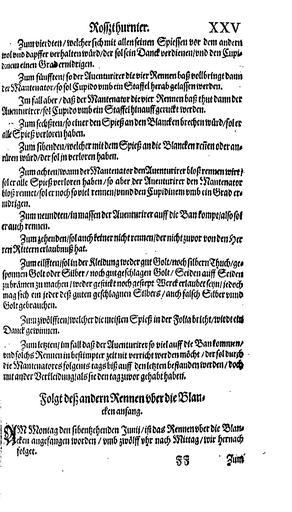 Rossthurnier. XXV
Zum vierdten / welcher sich mit allen seinen Spiessen vor dem andern
wol vnd dapffer verhalten würd / der sol sein Danck verdienen / vnd den Cupi-
dinem einen Grad ernidrigen.
Zum fünfften / so der Auenturirer die vier Rennen baß vollbringt dann
der Mantenator / so sol Cupido vmb ein Staffel herab gelassen werden.
Im fall aber / daß der Mantenator die vier Rennen baß thut dann der
Auenturirer / sol Cupido vmb ein Staffel hinauff geruckt werden.
Zum sechsten / so einer den Spieß an den Blancken brechen würd / sol er
alle Spieß verloren haben.
Zum sibenden / welcher mit dem Spieß an die Blancken reiten oder an-
rüren würd / der sol in verloren haben.
Zum achten / wann der Mantenator den Auenturirer bloß rennen wirt /
sol er alle Spieß verloren haben / so aber der Auenturirer den Mantenator
bloß rennet / sol er noch so viel rennen / vnnd den Cupidinem vmb ein Grad er-
nidrigen.
Zum neundten / in massen der Auenturirer auff die Ban kompt / also sol
er auch rennen.
Zum zehenden / sol auch keiner nicht rennen / der nicht zuvor von den Her-
ren Rittern erlaubnuß hat.
Zum eilfften / sol in der Kleidung weder gut Golt / noch silbern Thuch / ge-
sponnen Golt oder Silber / noch gut geschlagen Golt / Seiden auff Seiden
zubrämen zu machen / weder gestickt noch gesteppt Werck erlaubet seyn / jedoch
mag sich ein jeder deß guten geschlagnen Silbers / auch falsch Silber vnnd
Golt gebrauchen.
Zum zwölfften / welcher die meisten Spieß in der Folla bricht / wird ein
Danck gewinnen.
Zum letzten / im fall daß der Auenturirer so viel auff die Ban kommen /
vnd solchs Rennen in bestimpter zeit nit verricht werden möcht / der sol durch
die Mantenatores folgents tags biß auff den letzten bestanden werden / doch
mit ander Verkleidung / als sie den tag zuvor gehabt haben.
Folgt deß andern Rennen vber die Blan-
cken anfang.
AM Montag den sibentzehenden Junij / ist das Rennen vber die Blan-
cken angefangen worden / vmb zwölff vhr nach Mittag / wie hernach
folget.
FF Zum